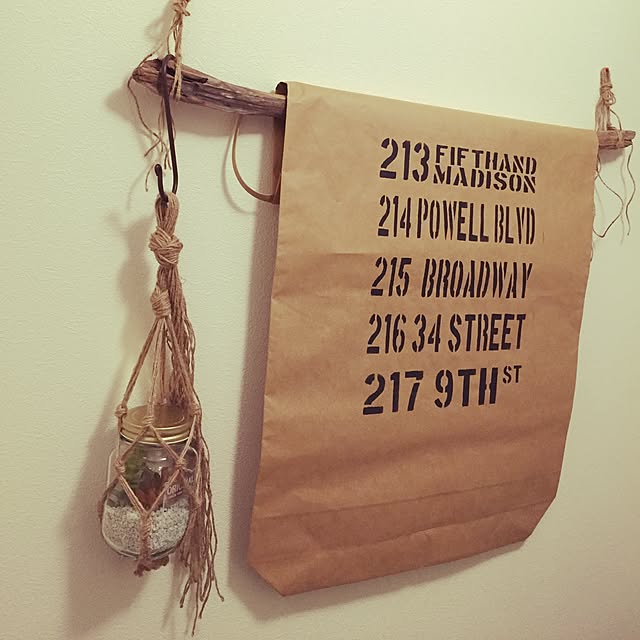 213 FIFTHAND
MADISON
214 POWELL BLVD
215 BROADWAY
216 34 STREET
217 9TH ST
ORIGINAL